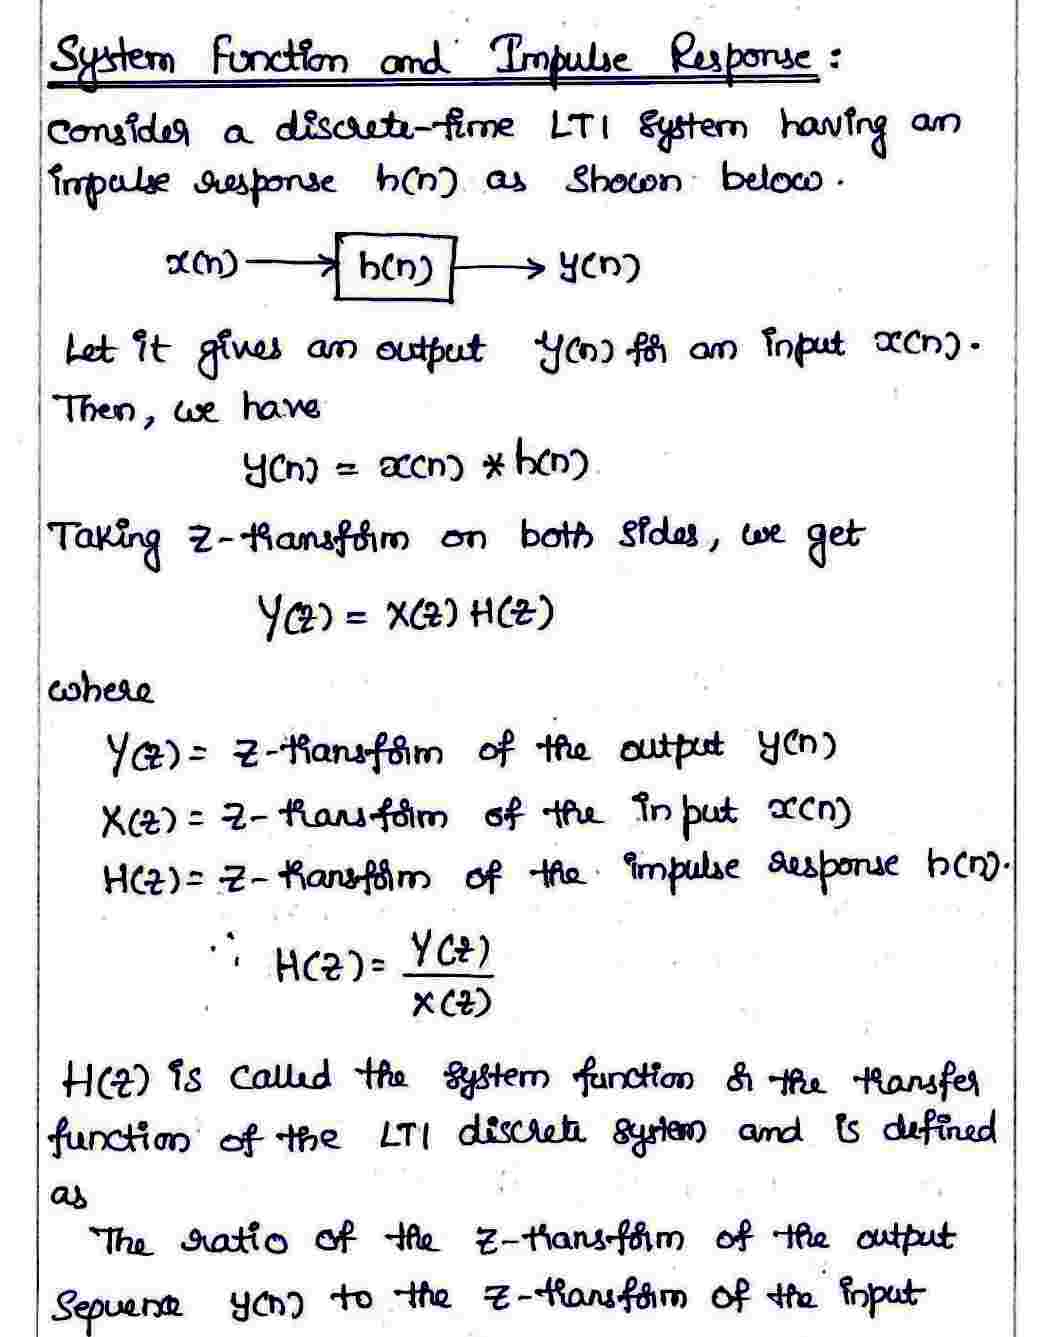 System Function and Impulse Response:
Consider a discrete-time LTI system having an
impulse response h(n) as shown below.
x(n) → h(n) → y(n)
Let it gives an output y(n) for an input x(n).
Then, we have
y(n) = x(n) * h(n)
Taking Z-transform on both sides, we get
Y(Z) = X(Z) H(Z)
where
Y(Z) = Z-transform of the output y(n)
X(Z) = Z-transform of the input x(n)
H(Z) = Z-transform of the impulse response h(n).
∴ H(Z) = Y(Z)
X(Z)
H(Z) is called the system function or the transfer
function of the LTI discrete system and is defined
as
The ratio of the Z-transform of the output
Sequence y(n) to the Z-transform of the input